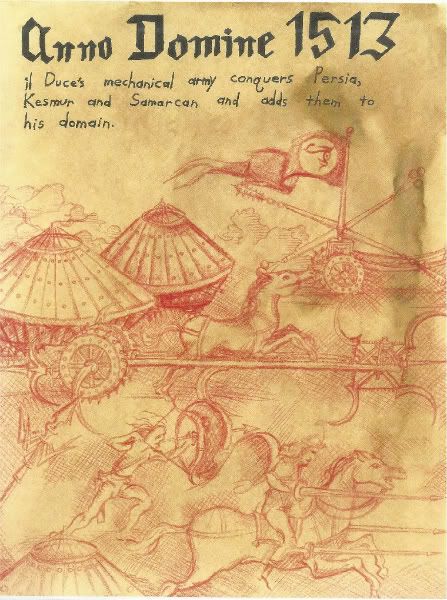 Anno Domine 1513
il Duce's mechanical army conquers Persia,
Kesmur and Samarcan and adds them to
his domain.